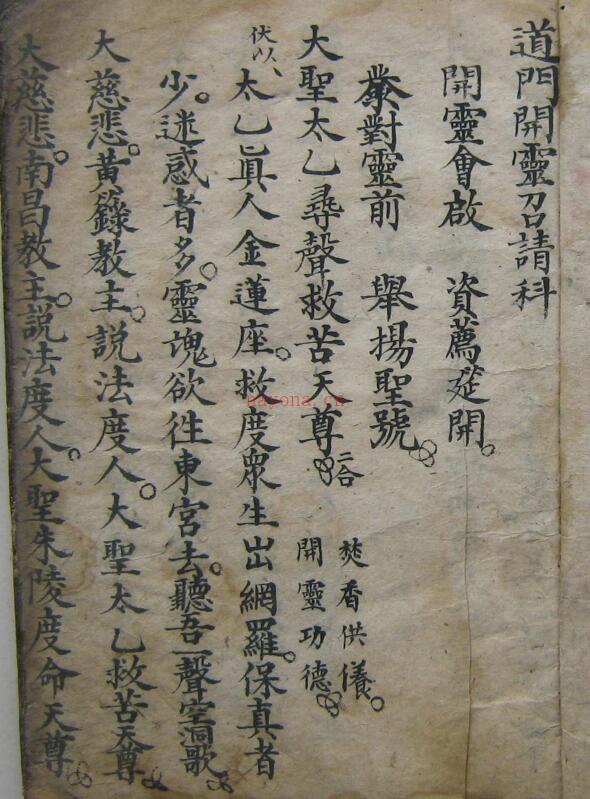 道門開靈召請科
開靈會啟 資薦筵開。
棻對靈前 舉揚聖號。
大聖太乙尋聲救苦天尊 二合 焚香供儀。
開靈功德
伏以、
太乙真人金蓮座。救度眾生出網羅。保真者
少。迷惑者多。靈魂欲往東宮去。聽吾一聲空洞歌
大慈悲。黃籙教主。說法度人。大聖太乙救苦天尊
大慈悲。南昌教主。說法度人。大聖朱陵度命天尊
nayona.cn